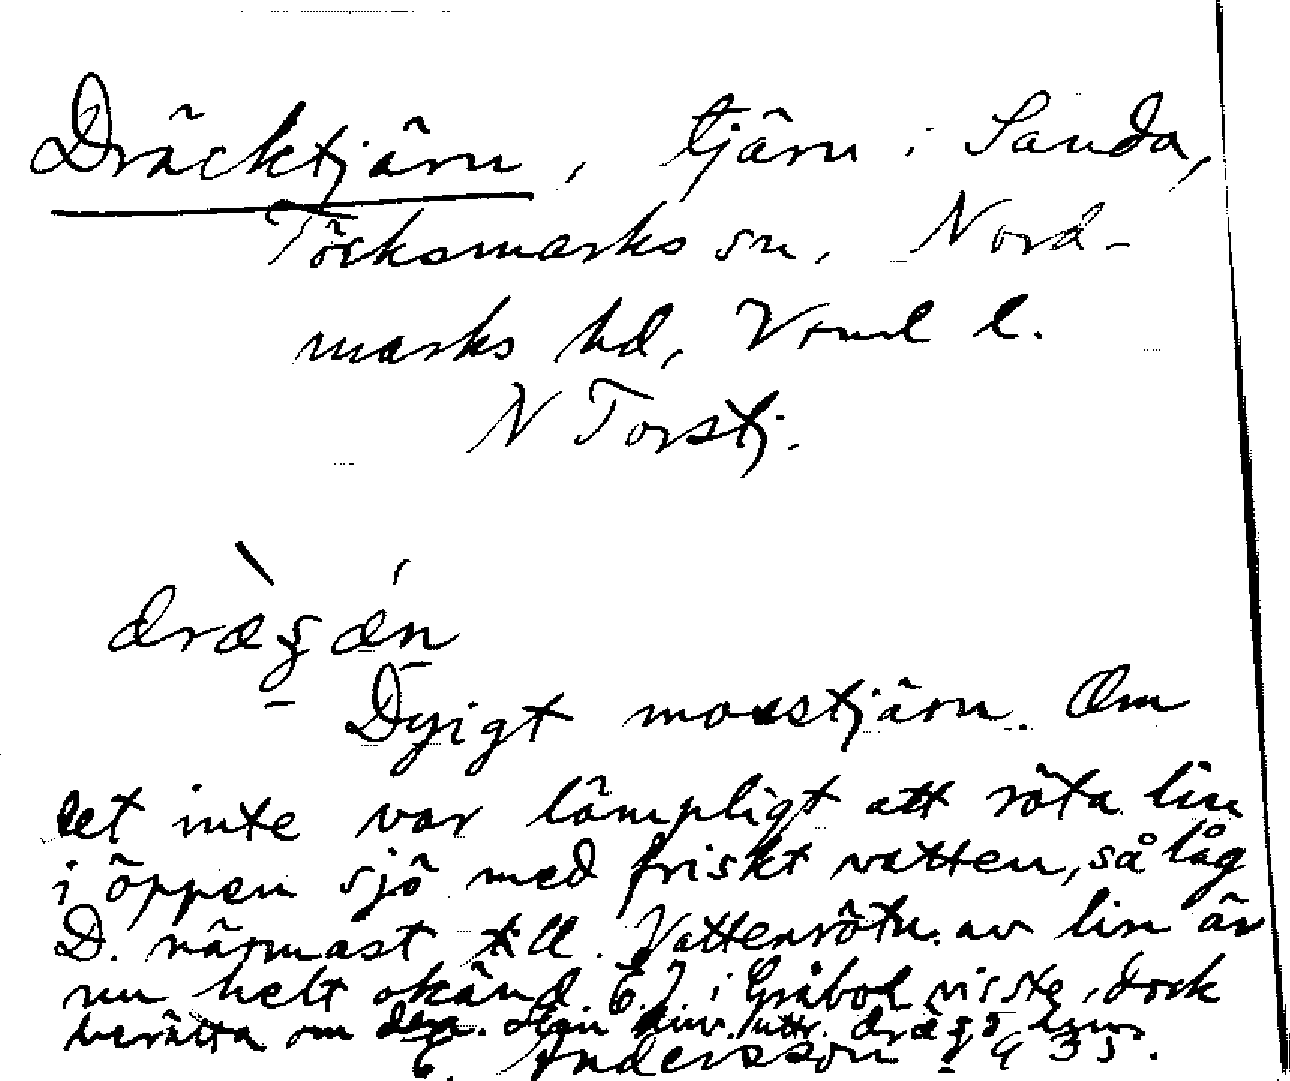 Dräcktjärn, tjärn i Sanda,
Töcksmarks sn, Nord-
marks hd, Vrml l.
N Torstj.
dræ̀ʂǽn
Dyigt mosstjärn. Om
det inte var lämpligt att röta lin
i öppen sjö med friskt vatten, så låg
D. närmast till. Vattenrötn. av lin är
nu helt okänd. E.J. i Gråbol visste, dock
berätta om den.
E. Andersson 1935.